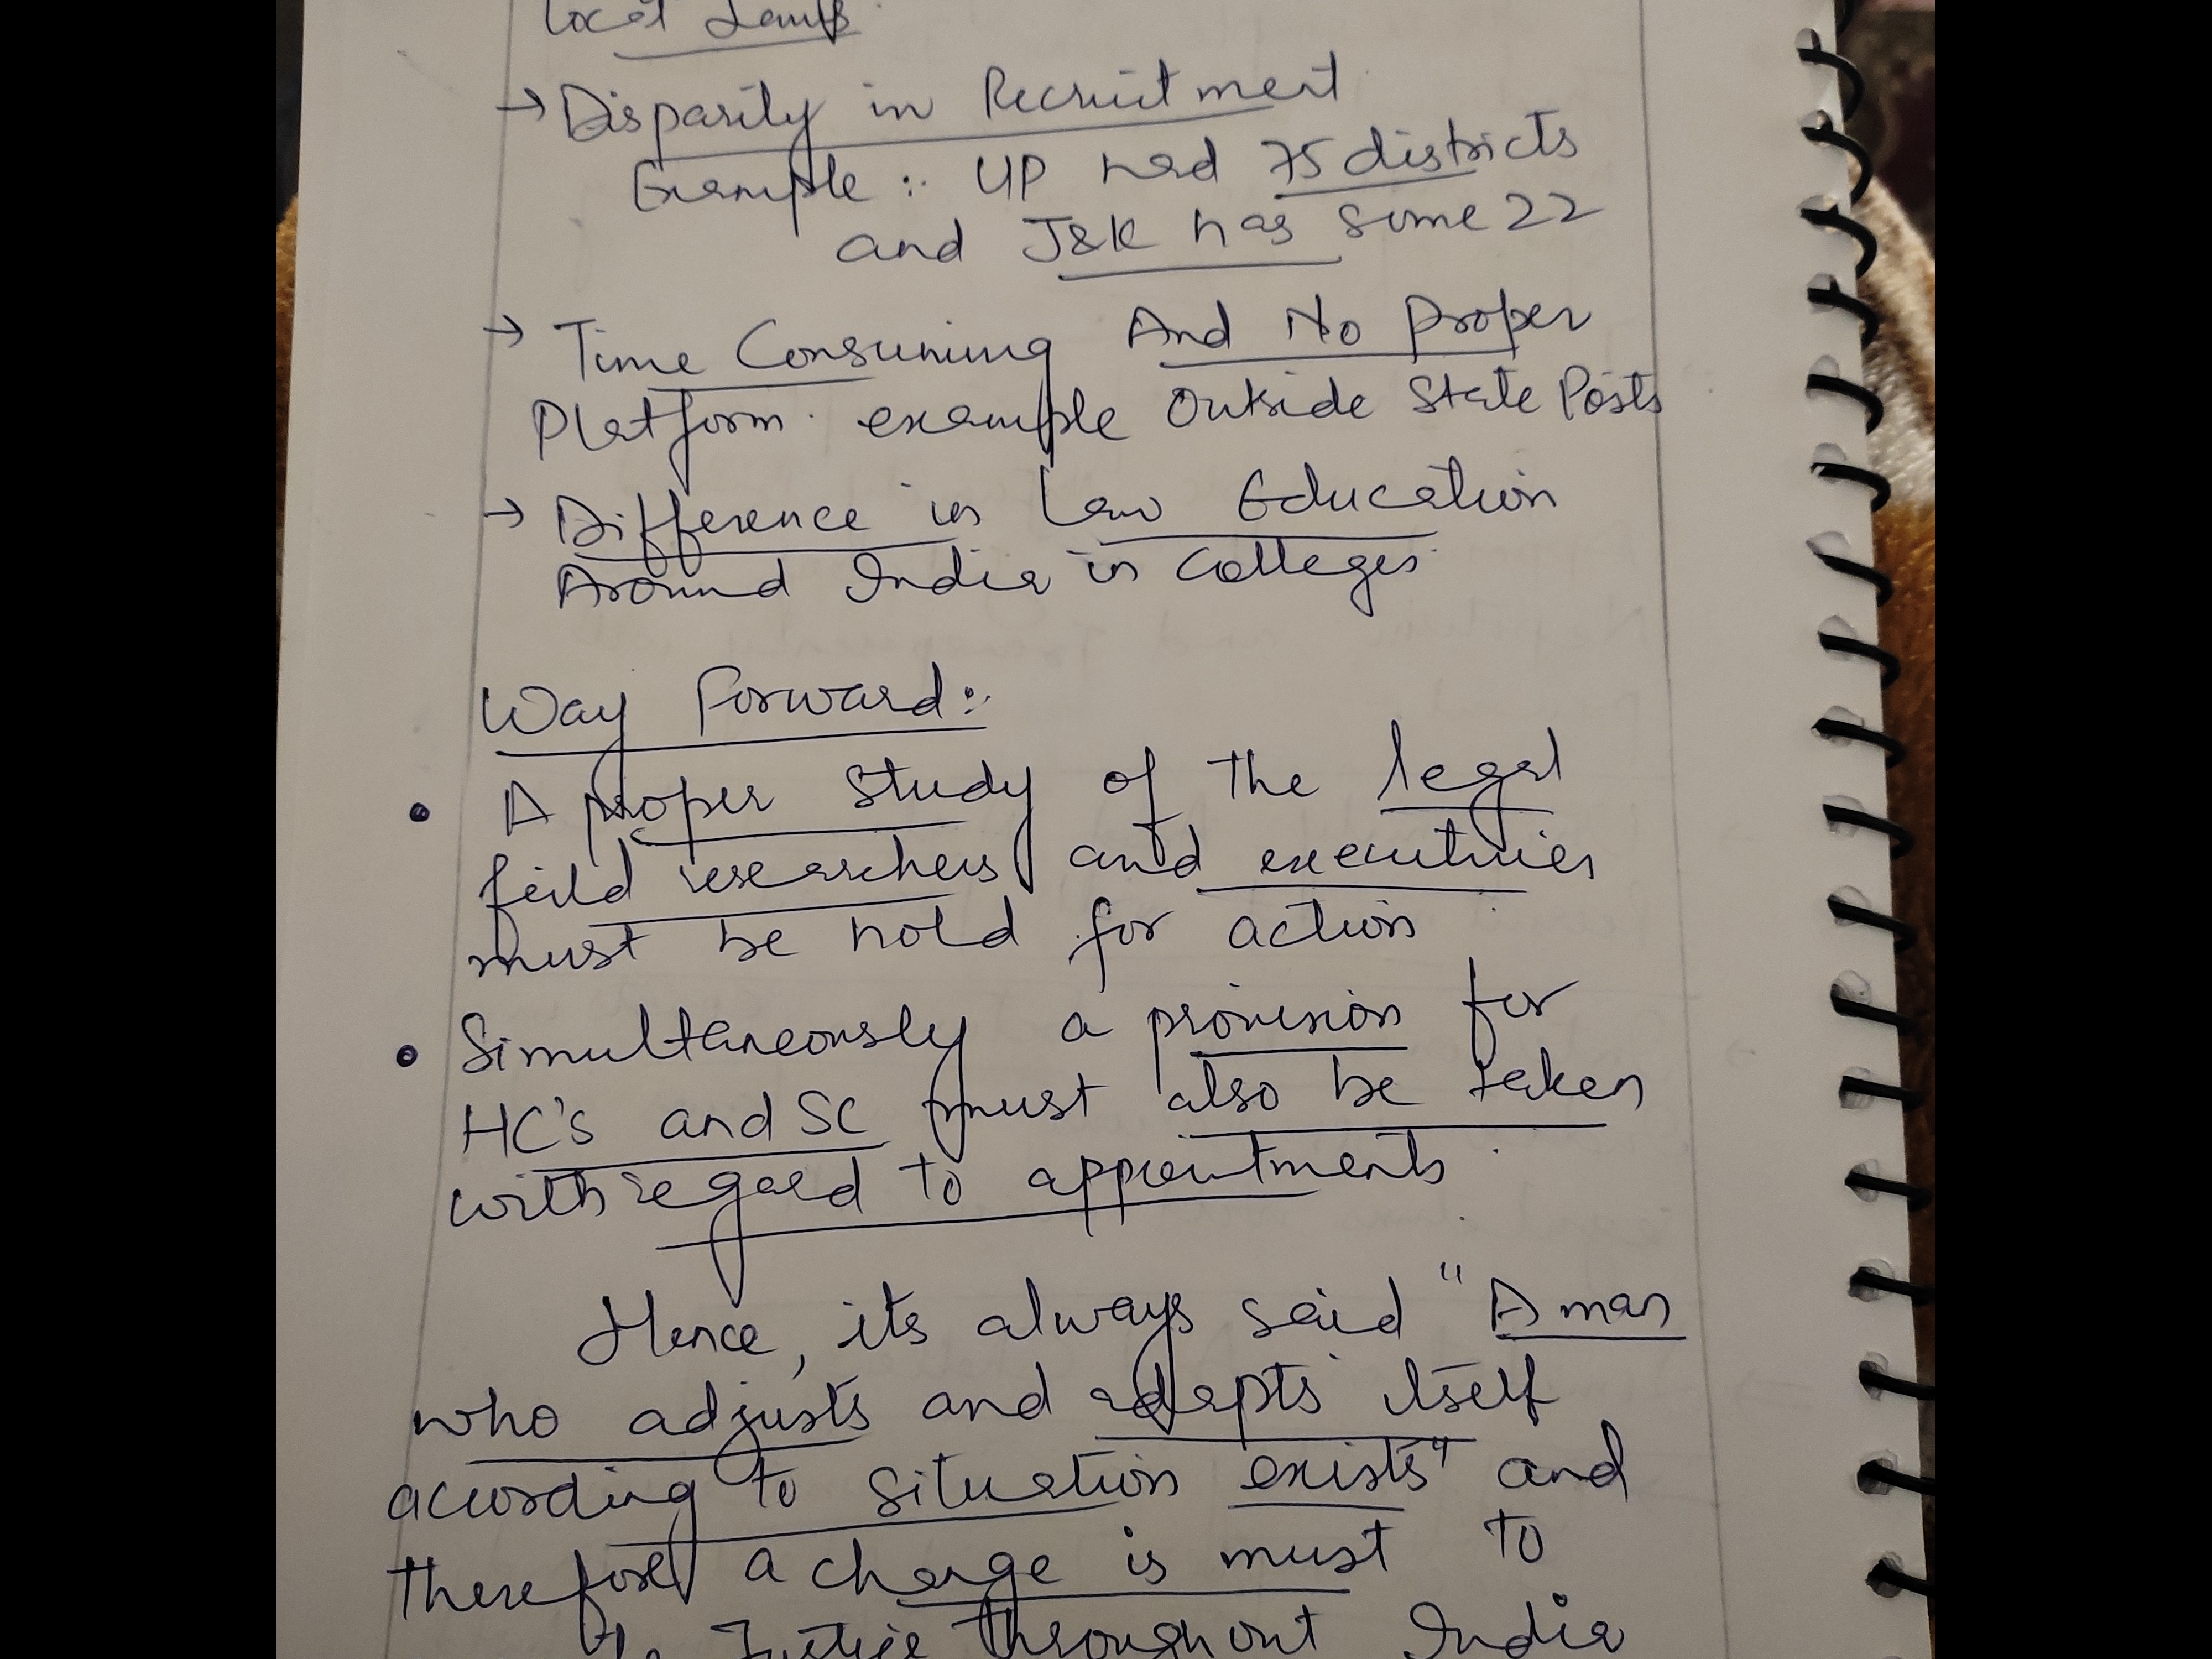 Local
→ Disparity in Recruitment
Example :- UP had 75 districts
and J&K has some 22
→ Time Consuming And No Proper
Platform. example Outside State Posts
→ Difference in Law Education
Around India in Colleges
Way Forward :-
• A proper study of the legal
feild researchers and executives
must be hold for action
• Simultaneously a provision for
HC's and SC must also be taken
with regard to appointments
Hence, its always said "A man
who adjusts and adapts itself
acording to situation exists" and
therefore a change is must to
Justice throughout India